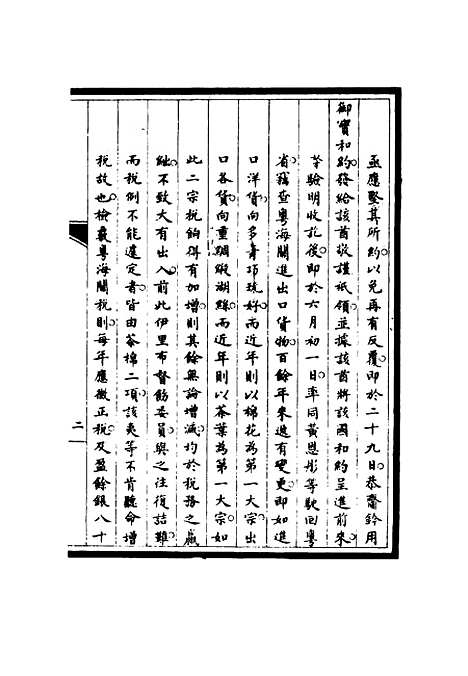 亟應堅其所約以免再有反覆即於二十九日恭齎鈐用
御寶和約發給該酋敬謹祇領並據該酋將該國和約呈進前來
等驗明收訖後即於六月初一日率同黃恩彤等馳回粵
省竊查粵海關進出口貨物百餘年來遞有變更即如進
口洋貨向多青巧琉妤而近年則以棉花為第一大宗出
口各貨向重綢緞湖絲而近年則以茶葉為第一大宗如
此二宗稅餉得有加增則其餘無論增減均於稅務之贏
絀不致大有出入前此伊里布督飭委員與之往復詰難
而稅例不能遽定者皆由茶棉二項該夷等不肯聽命增
稅故也檢覈粵海關稅則每年應徵正稅及盈餘銀八十
二